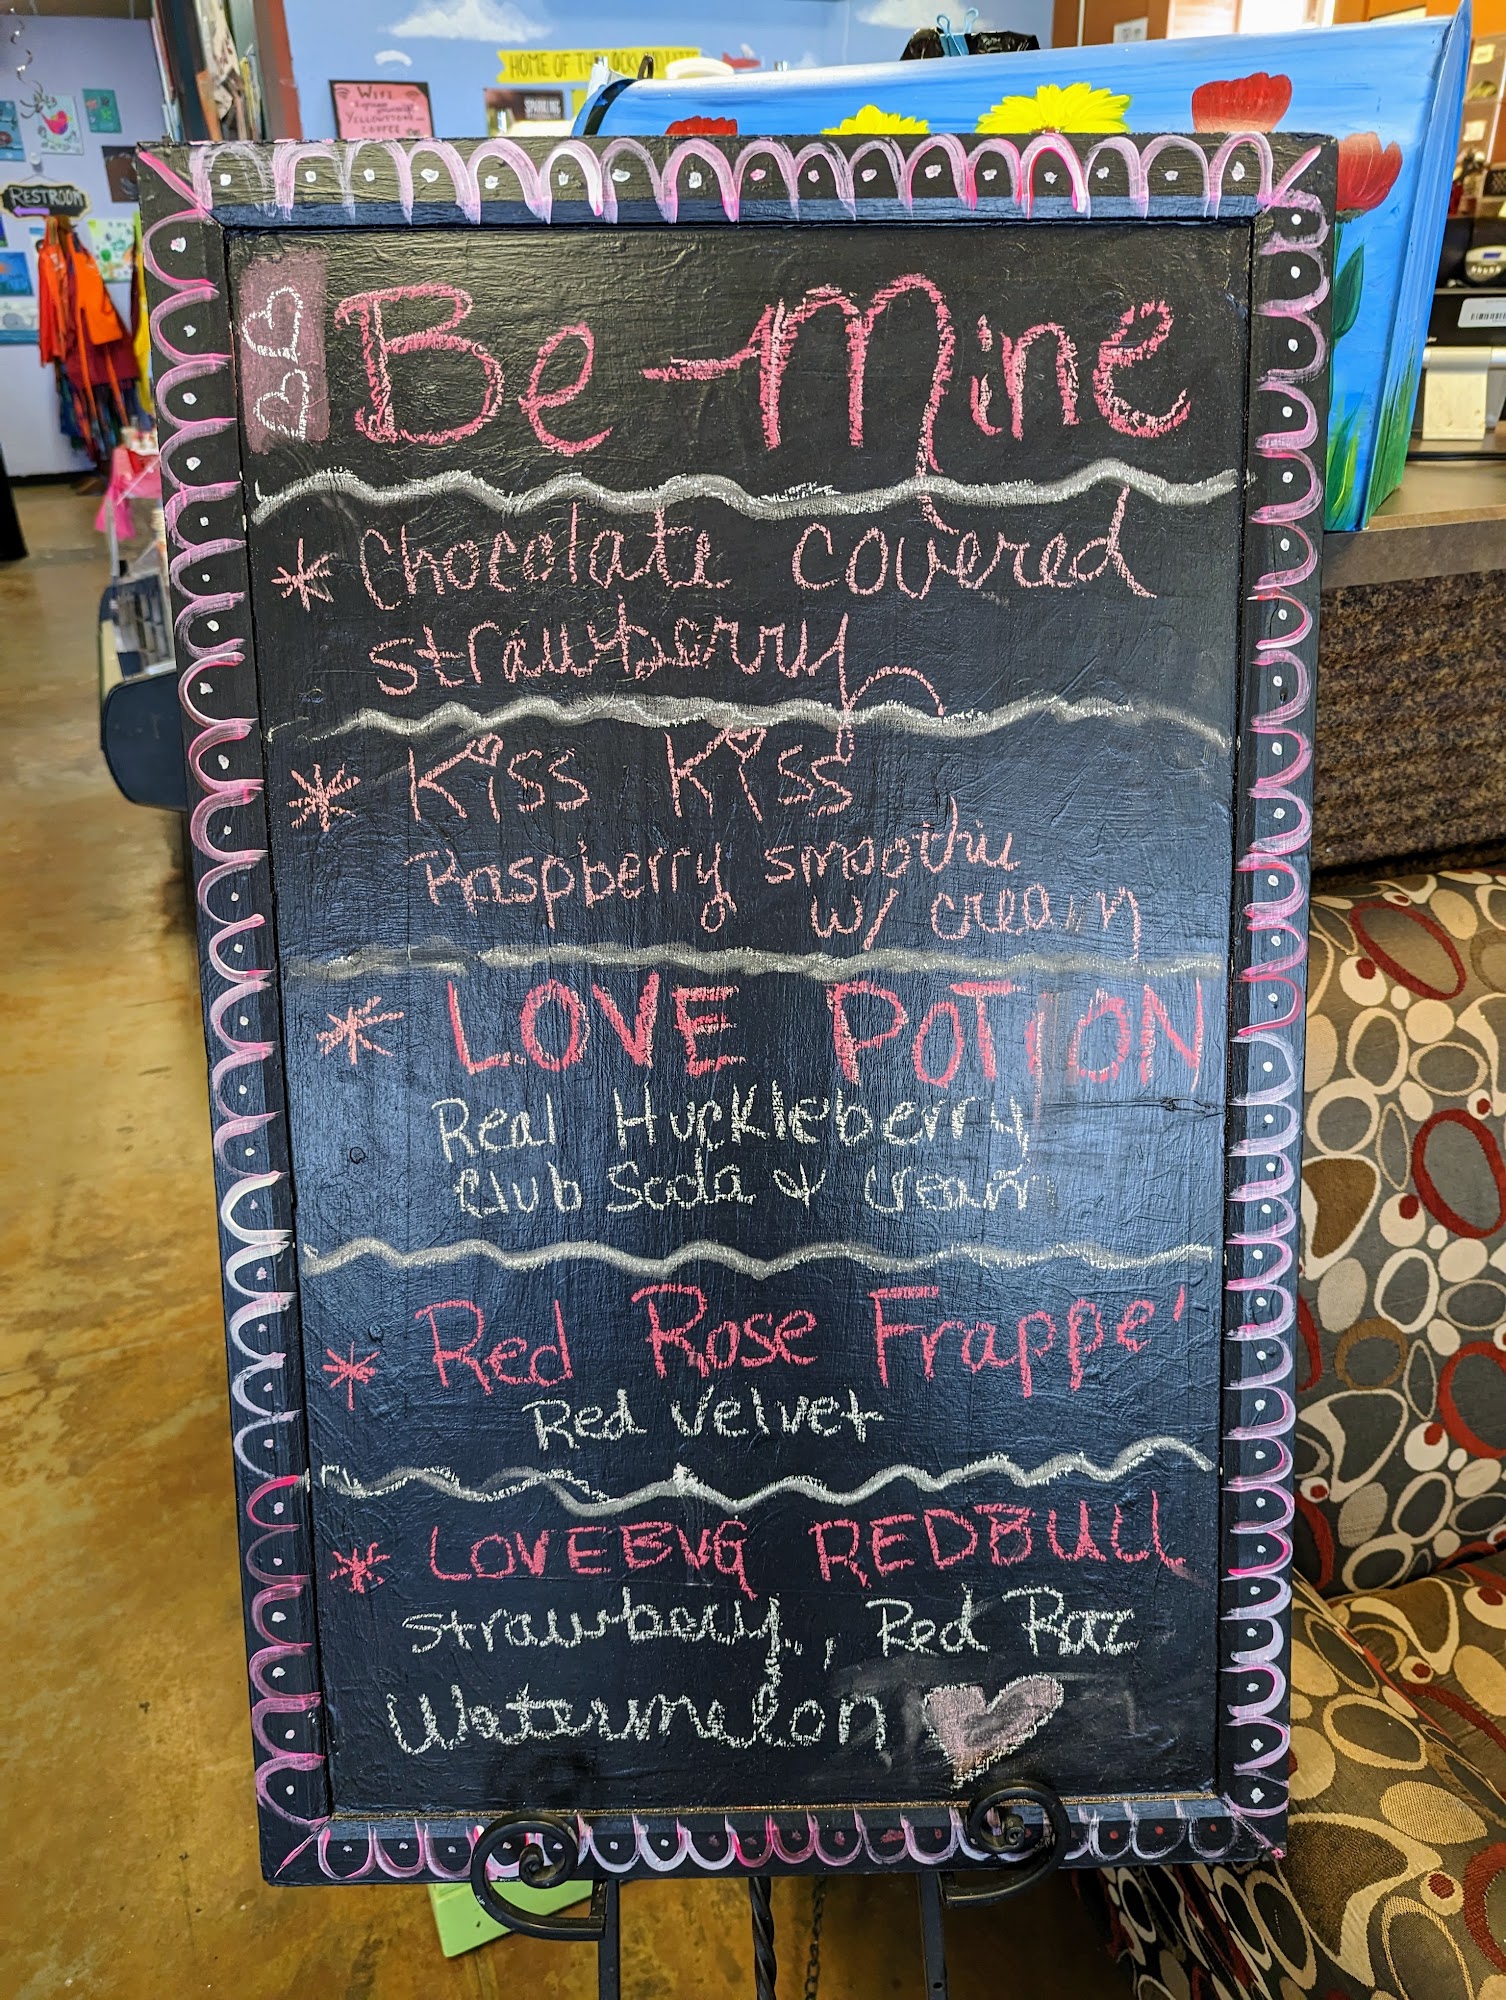 HOME OF THE
WIFI
YELLOWSTONE
COFFEE
SPARKLING
RESTROOM
Be Mine
* Chocolate covered
strawberry
* Kiss Kiss
Raspberry smoothie
w/ cream
* LOVE POTION
Real Huckleberry
Club Soda & cream
* Red Rose Frappe'
Red Velvet
* LOVEBUG REDBULL
strawberry, Red Raz
Watermelon